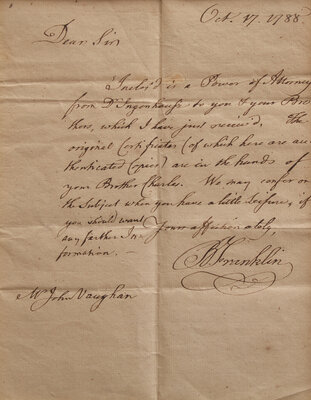 Oct. 17. 1788
Dear Sir
Inclos'd is a Power of Attorney
from Dr Ingenhausz to you & your Bro
thers, which I have just receiv'd. The
original Certificates (of which here are au
thenticated Copies) are in the hands of
your Brother Charles. We may confer on
the Subject when you have a little Leisure, if
you should want
any farther In
formation. —
Your affectionately
B Franklin
Mr John Vaughan